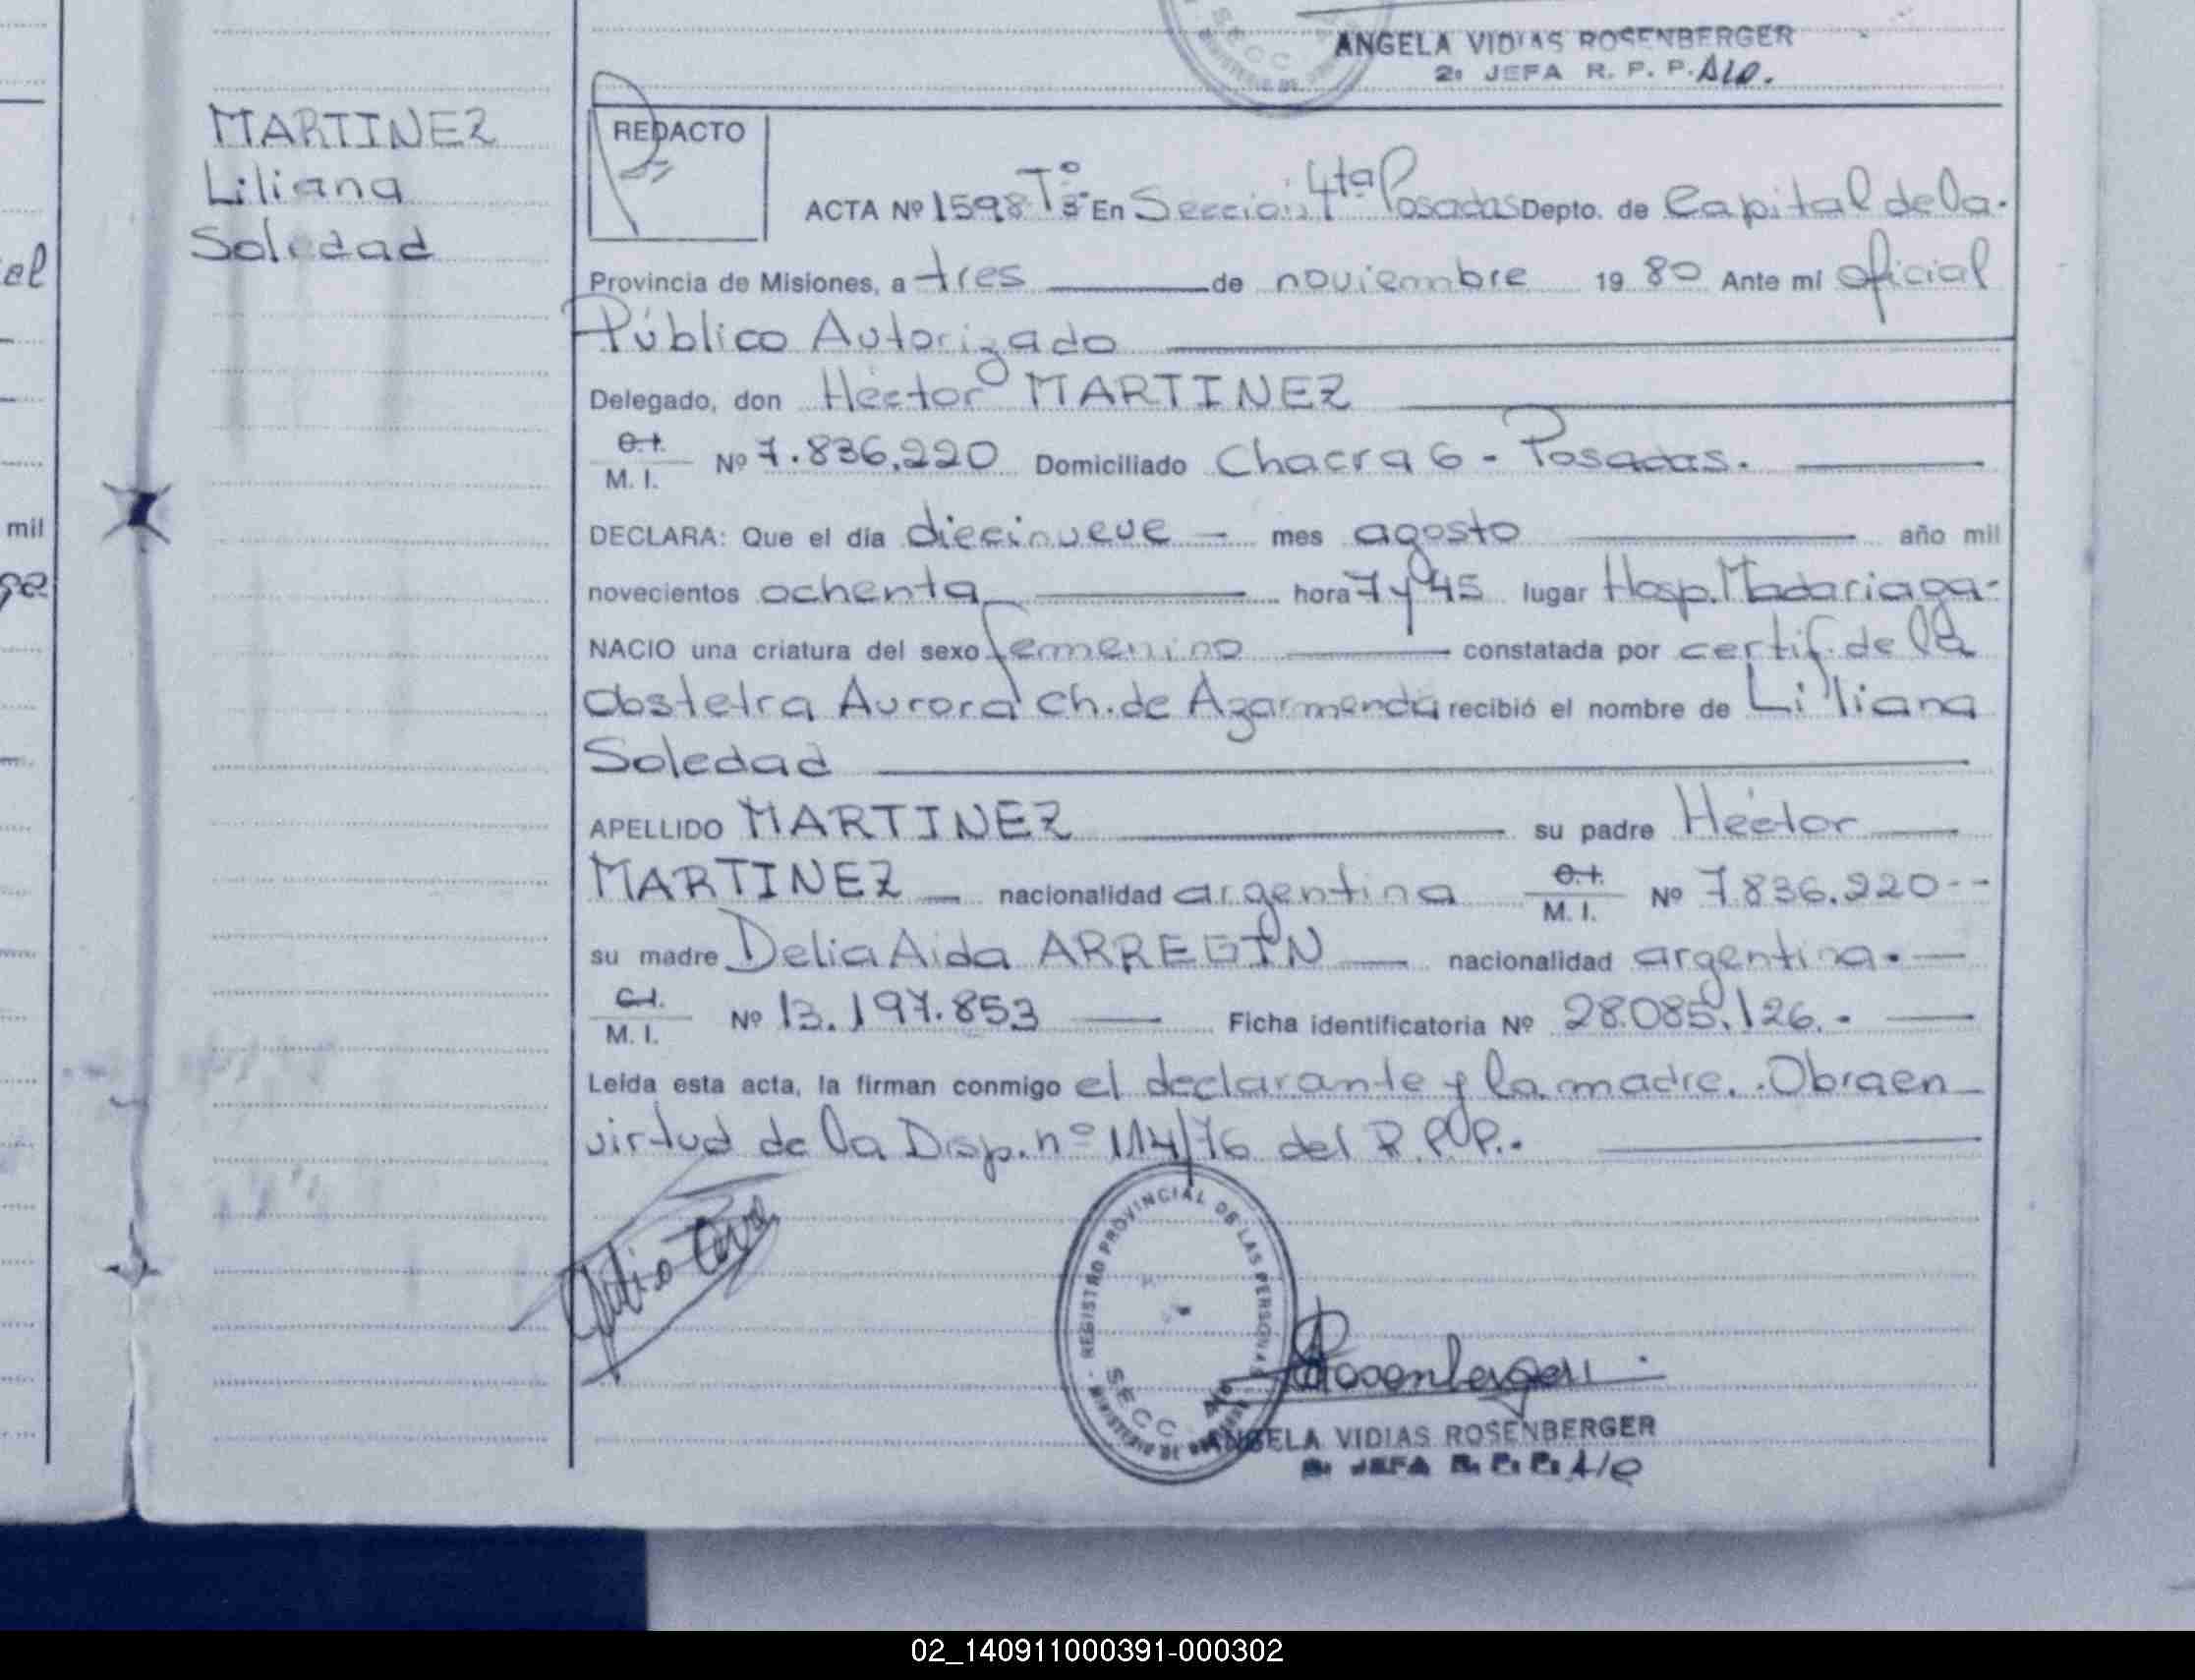 ANGELA VIDIAS ROSENBERGER
2ª JEFA R. P. P.
MARTINEZ
Liliana
Soledad
el
mil
REDACTO
ACTA Nº 1598 Tº 8 En Sección 4ta Posadas Depto. de Capital de la.
Provincia de Misiones, a tres de noviembre 19 80 Ante mí oficial
Público Autorizado
Delegado, don Héctor MARTINEZ
C.I. M. I. Nº 7.836.220 Domiciliado Chacra 6 - Posadas.
DECLARA: Que el día diecinueve — mes agosto año mil
novecientos ochenta hora 7 y 45 lugar Hosp. Madariaga-
NACIO una criatura del sexo femenino constatada por certif. de la
Obstetra Aurora Ch. de Azarmenda recibió el nombre de Liliana
Soledad
APELLIDO MARTINEZ su padre Héctor
MARTINEZ — nacionalidad argentina C.I. M. I. Nº 7.836.220--
su madre Delia Aida ARREGIN — nacionalidad argentina. —
C.I. M. I. Nº 13.197.853 — Ficha identificatoria Nº 28.085.126.- —
Leída esta acta, la firman conmigo el declarante y la madre. Obra en
virtud de la Disp. nº 114/76 del R.P.P.-
REGISTRO PROVINCIAL DE LAS PERSONAS
SECC
Rosenberger
ANGELA VIDIAS ROSENBERGER
2ª JEFA R. P. P. A/C
02_140911000391-000302